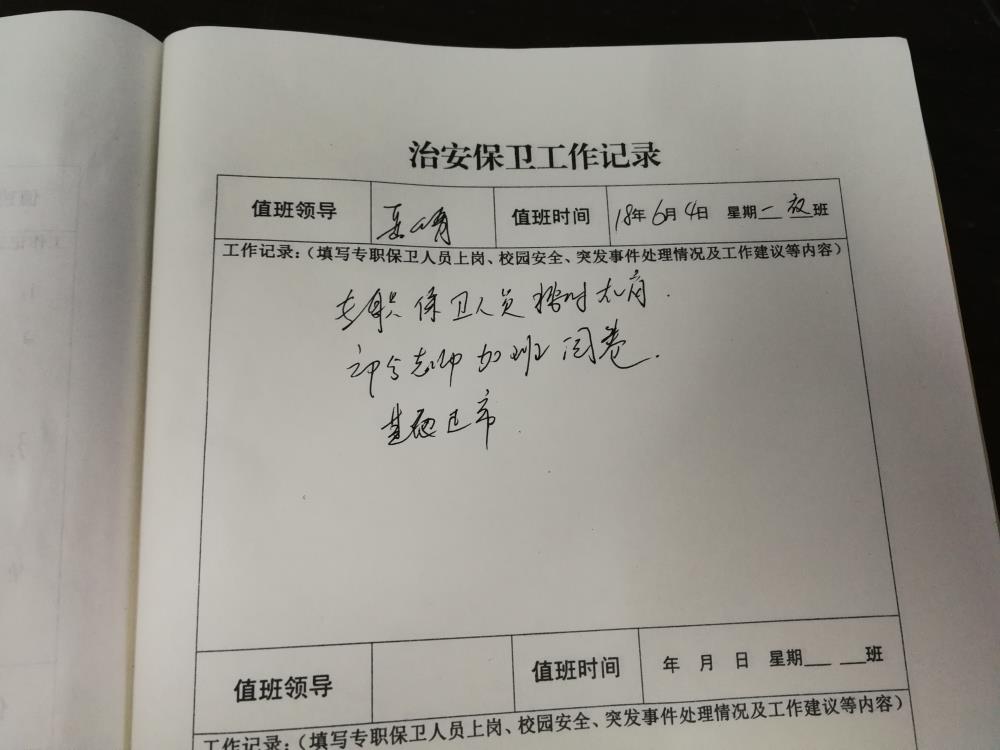 治安保卫工作记录
值班领导 值班时间 18年6月4日 星期一 夜班
工作记录：（填写专职保卫人员上岗、校园安全、突发事件处理情况及工作建议等内容）
专职保卫人员按时
老师加班阅卷.
值班领导 值班时间 年 月 日 星期___ ___班
工作记录：（填写专职保卫人员上岗、校园安全、突发事件处理情况及工作建议等内容）